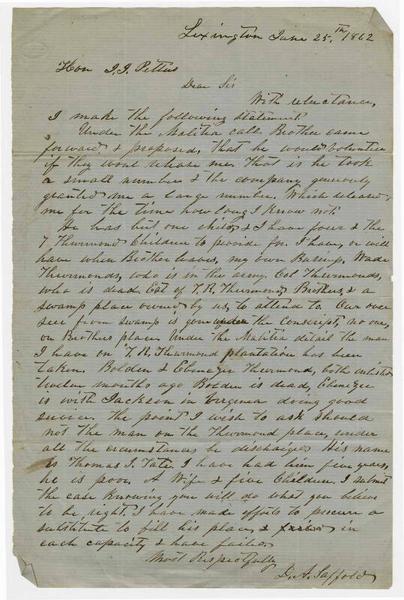 Lexington June 25.th 1862
Hon J. J. Pettus
Dear Sir
With reluctance,
I make the following statement
Under the Malitia call Brother came
forward & proposed that he would Volunteer
if they wout release me. that is he took
a small number & the company generously
granted me a large number. Which released
me for the time how long I know not
He has but one child & I have four & the
7 Thurmond Children to provide for. I have, or will
have when Brother leaves, my own Business, Wade
Thurmonds, who is in the army Col Thurmonds,
who is dead, Est of T. R. Thurmond, Brothers, & a
swamp place owned by us, to attend to. Our over
seer from swamp is gone under the conscript no one,
on Brothers place. Under the Malitia detail the man
I have on T. R. Thurmond plantation has been
taken. Bolden & Ebenezer Thurmond, both enlisted
twelve months ago Bolden is dead, Ebenezer
is with Jackson in Virginia doing good
service. the point I wish to ask should
not the man on the Thurmond place, under
all the circumstances be discharged. His name
is Thomas I. Tate I have had him five years,
he is poor. A Wife & five Children. I submit
the case knowing you will do what you believe
to be right. I have made efforts to procure a
substitute to fill his place, & in
each capacity & have failed.
Most Respectfully
D. A. Saffold